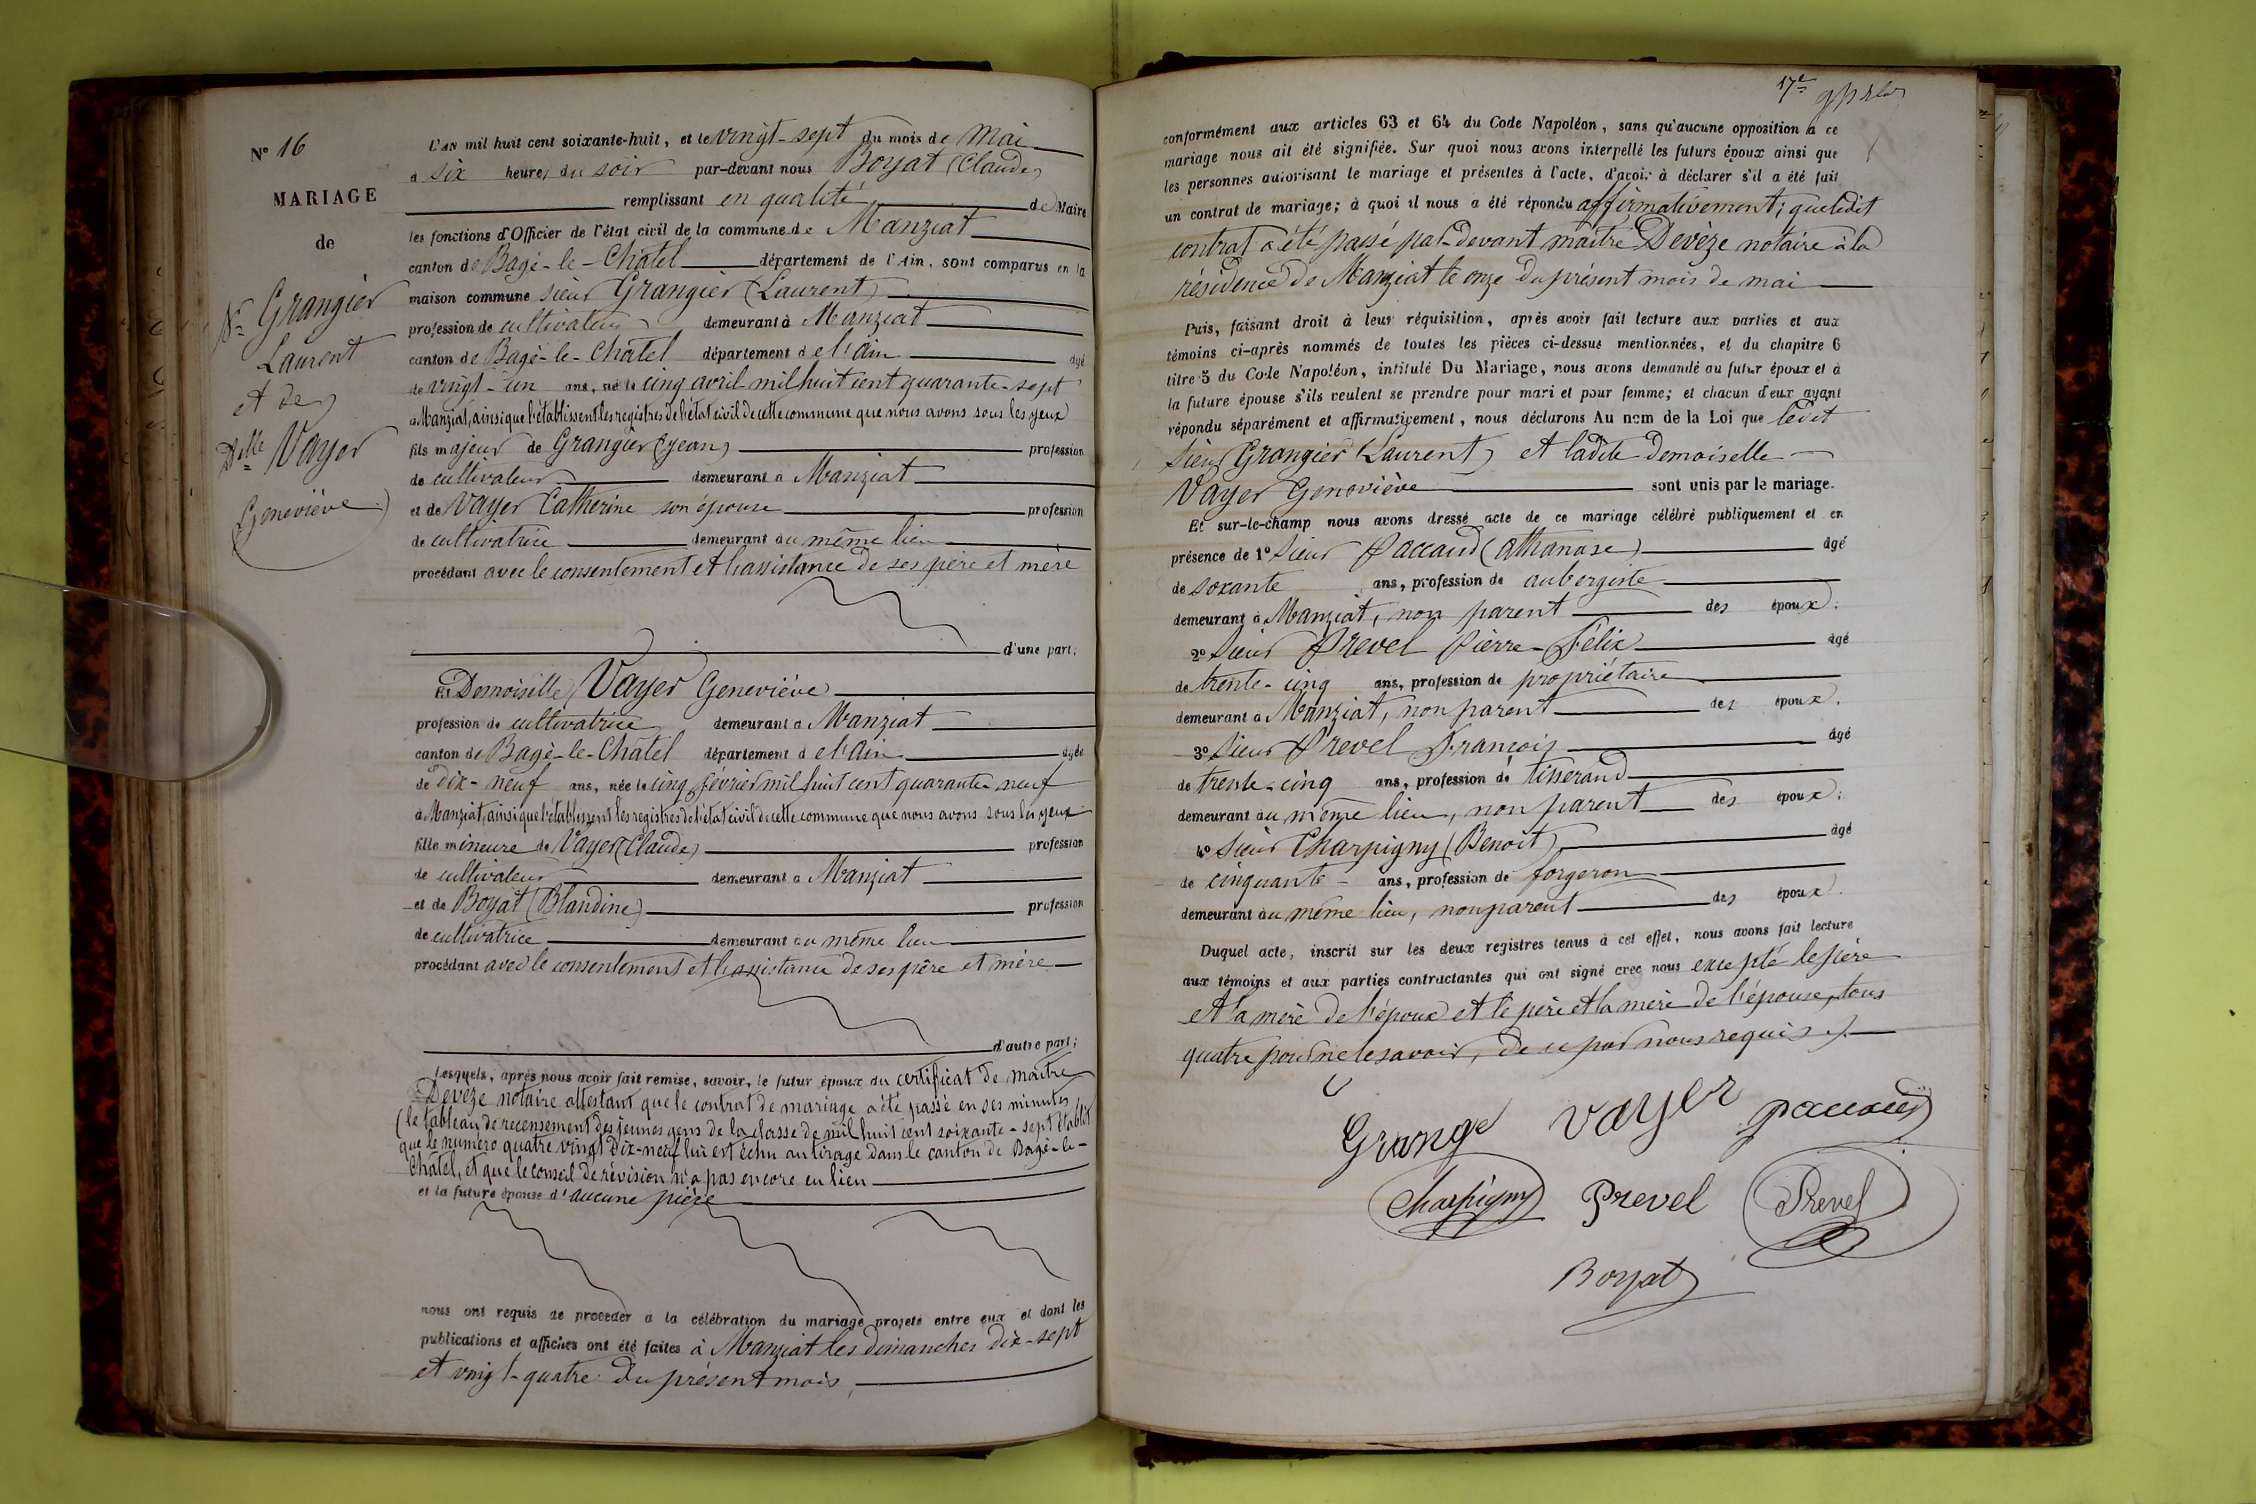 N° 16
MARIAGE
de
Sr Grangier
Laurent
et de
Delle Vayer
Geneviève
L'an mil huit cent soixante-huit, et le vingt-sept du mois de Mai
à six heures du soir par-devant nous Boyat (Claude)
remplissant en qualité de Maire
les fonctions d'Officier de l'état civil de la commune de Manziat
canton de Bagé-le-Châtel département de l'Ain, sont comparus en la
maison commune sieur Grangier (Laurent)
profession de cultivateur demeurant à Manziat
canton de Bagé-le-Châtel département de l'Ain âgé
de vingt-un ans, né le cinq avril mil huit cent quarante-sept
à Manziat, ainsi que l'établissent les registres de l'état civil de cette commune que nous avons sous les yeux
fils majeur de Grangier (Jean) profession
de cultivateur demeurant à Manziat
et de Vayer Catherine son épouse profession
de cultivatrice demeurant au même lieu
procédant avec le consentement et l'assistance de ses père et mère
d'une part;
Et Demoiselle Vayer Geneviève
profession de cultivatrice demeurant à Manziat
canton de Bagé-le-Châtel département de l'Ain âgée
de dix-neuf ans, née le cinq février mil huit cent quarante-neuf
à Manziat, ainsi que l'établissent les registres de l'état civil de cette commune que nous avons sous les yeux
fille mineure de Vayer (Claude) profession
de cultivateur demeurant à Manziat
et de Boyat (Blandine) profession
de cultivatrice demeurant au même lieu
procédant avec le consentement et l'assistance de ses père et mère
d'autre part;
Lesquels, après nous avoir fait remise, savoir, le futur époux du certificat de maître
Devèze notaire attestant que le contrat de mariage a été passé en ses minutes
(le tableau de recensement des jeunes gens de la classe de mil huit cent soixante-sept établit
que le numéro quatre vingt dix-neuf lui est échu au tirage dans le canton de Bagé-le-
Châtel, et que le conseil de révision n'a pas encore eu lieu
et la future épouse d'aucune pièce
nous ont requis de procéder à la célébration du mariage projeté entre eux et dont les
publications et affiches ont été faites à Manziat les dimanches dix-sept
et vingt-quatre du présent mois,
17e
conformément aux articles 63 et 64 du Code Napoléon, sans qu'aucune opposition à ce
mariage nous ait été signifiée. Sur quoi nous avons interpellé les futurs époux ainsi que
les personnes autorisant le mariage et présentes à l'acte, d'avoir à déclarer s'il a été fait
un contrat de mariage; à quoi il nous a été répondu affirmativement; que ledit
contrat a été passé par-devant maître Devèze notaire à la
résidence de Manziat le onze du présent mois de mai
Puis, faisant droit à leur réquisition, après avoir fait lecture aux parties et aux
témoins ci-après nommés de toutes les pièces ci-dessus mentionnées, et du chapitre 6
titre 5 du Code Napoléon, intitulé Du Mariage, nous avons demandé au futur époux et à
la future épouse s'ils veulent se prendre pour mari et pour femme; et chacun d'eux ayant
répondu séparément et affirmativement, nous déclarons Au nom de la Loi que ledit
sieur Grangier (Laurent) et ladite demoiselle
Vayer Geneviève sont unis par le mariage.
Et sur-le-champ nous avons dressé acte de ce mariage célébré publiquement et en
présence de 1° sieur Paccaud (Athanase) âgé
de soxante ans, profession de aubergiste
demeurant à Manziat, non parent des époux;
2° sieur Prevel Pierre-Félix âgé
de trente-cinq ans, profession de propriétaire
demeurant à Manziat, non parent des époux;
3° sieur Prevel François âgé
de trente-cinq ans, profession de tisserand
demeurant au même lieu, non parent des époux;
4° sieur Charpigny (Benoit) âgé
de cinquante ans, profession de forgeron
demeurant au même lieu, non parent des époux.
Duquel acte, inscrit sur les deux registres tenus à cet effet, nous avons fait lecture
aux témoins et aux parties contractantes qui ont signé avec nous excepté le père
et la mère de l'époux et le père et la mère de l'épouse, tous
quatre pour ne le savoir, de ce par nous requis
Grange Vayer paccaud
Charpigny Prevel Prevel
Boyat